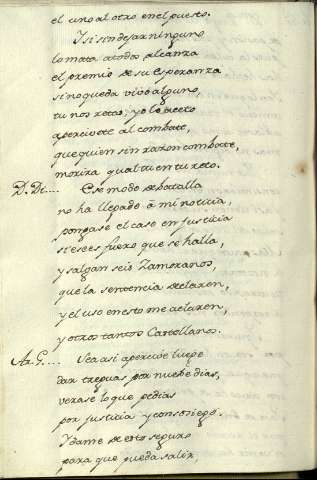 el uno al otro en el puesto.
Y si sin dejar ninguno
lo mata a todos alcanza
el premio de su esperanza
si no queda vivo alguno,
tu nos retas; yo lo aceto
apercivete al combate,
que quien sin razon combate,
morira qual tu en tu reto.
D. Di.... Ese modo de batalla
no ha llegado â mi noticia,
pongase el caso en justicia
si es ese fuero que se halla,
y salgan seis Zamoranos,
que la sentencia declaren,
y el uso en esto me aclaren,
y otros tantos Castellanos.
Ar. G.... Sea asi apercive luego
dar treguas por nuebe dias,
verase lo que pedias
por justicia y con sosiego.
Y dame de esto seguro
para que pueda salir,